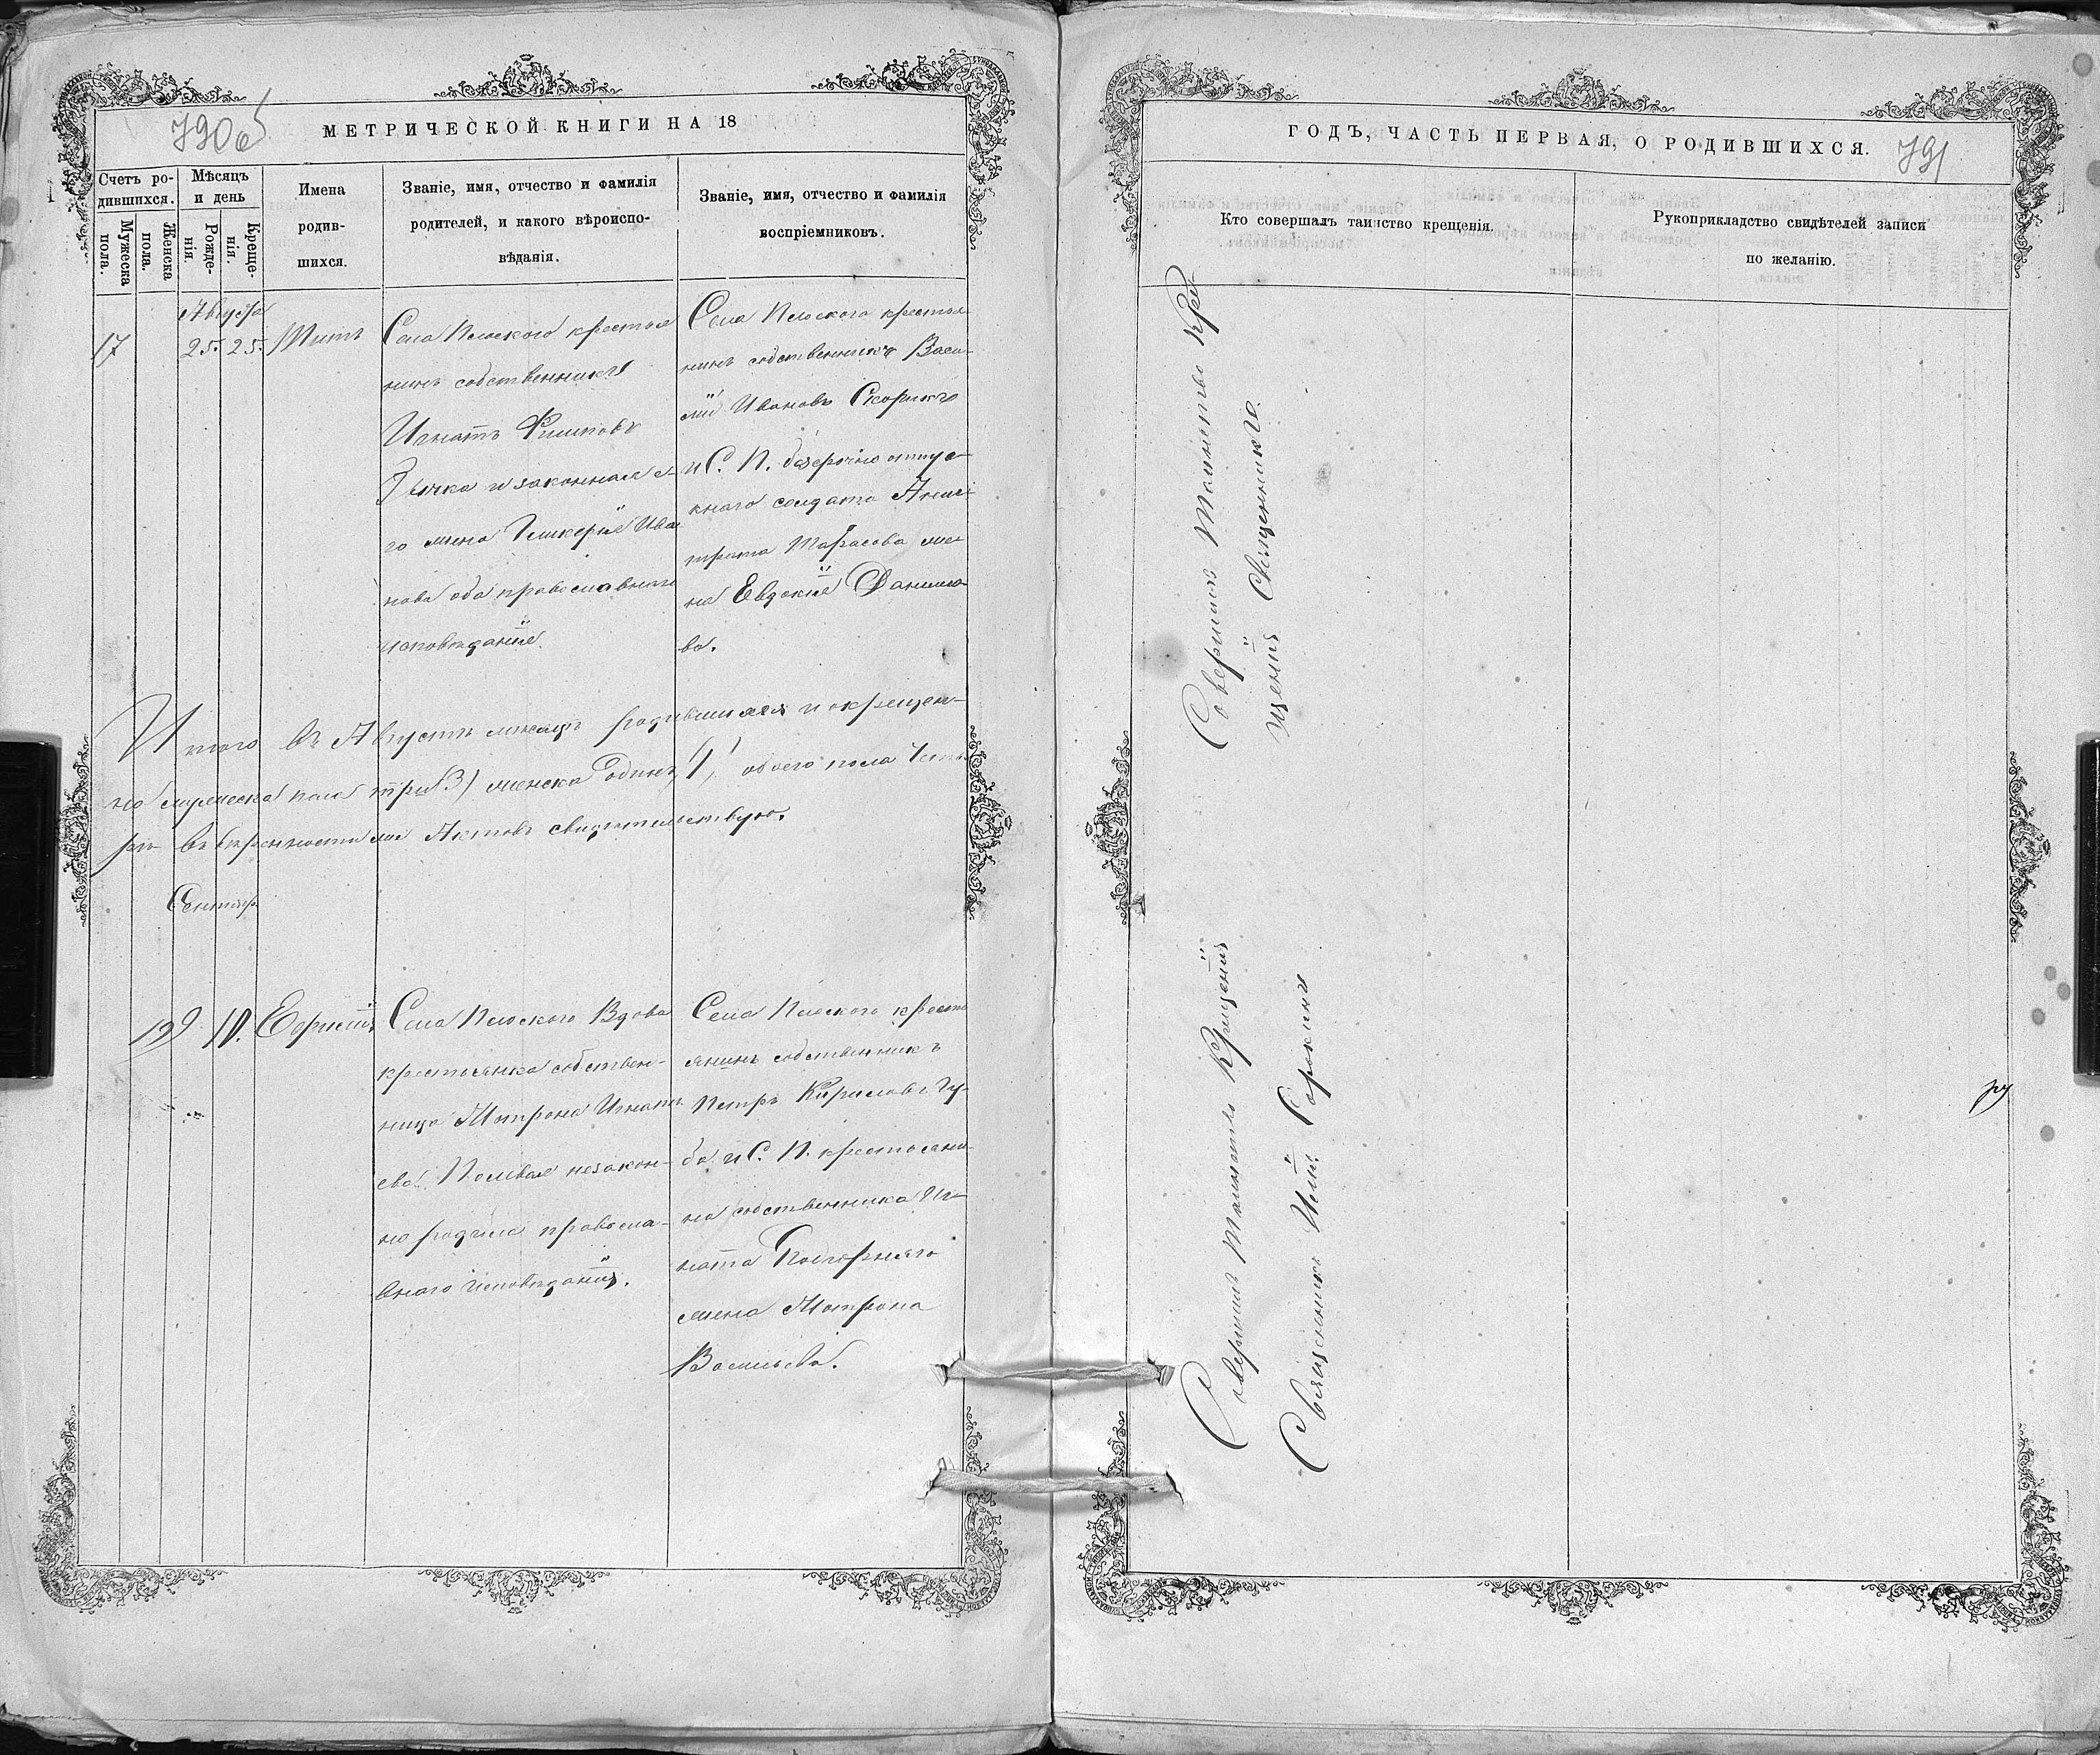 790 об
МЕТРИЧЕСКОЙ КНИГИ НА 18
Счетъ ро-
дившихся.
Мужеска
пола.
Женска
пола.
Мѣсяцъ
и день
Рожде-
нія.
Креще-
нія.
Имена
родив-
шихся.
Званіе, имя, отчество и фамилія
родителей, и какого вѣроиспо-
вѣданія.
Званіе, имя, отчество и фамилія
воспріемниковъ.
Августа
17 25. 25. Титъ
Села Плоского крестья
нинъ собственникъ
Игнатъ Филиповъ
и законная е-
го жена Гликерія Ива
нова оба православнаго
исповѣданія.
Села Плоского крестья
нинъ собственникъ Васи-
лій Ивановъ Скорикъ
и С. П. безсрочно отпус-
кнаго солдата
Тарасова же-
на Евдокія Данило-
ва.
Итого въ Августѣ мѣсяцѣ родившихся и окрещен-
но мужеска пола три (3) женска одинъ (1) обоего пола четы
ре въ вѣрности Актовъ свидѣтельствую.
Сентябр.
12 9 10.
Села Плоского Вдова
крестьянка собствен-
ница Мотрона Игнать
ева незакон-
но родила правосла-
внаго исповѣданія.
Села Плоского кресть
янинъ собственникъ
Петръ Кириловъ Гу-
ба и С. П. крестьяни-
на собственника Иг-
ната
жена Мотрона
Васильева.
ГОДЪ, ЧАСТЬ ПЕРВАЯ, О РОДИВШИХСЯ.
791
Кто совершалъ таинство крещенія.
Рукоприкладство свидѣтелей записи
по желанію.
Совершилъ Таинство Кре
щенія Священникъ
Совершилъ Таинство Крещенія
Священникъ Сорокинъ